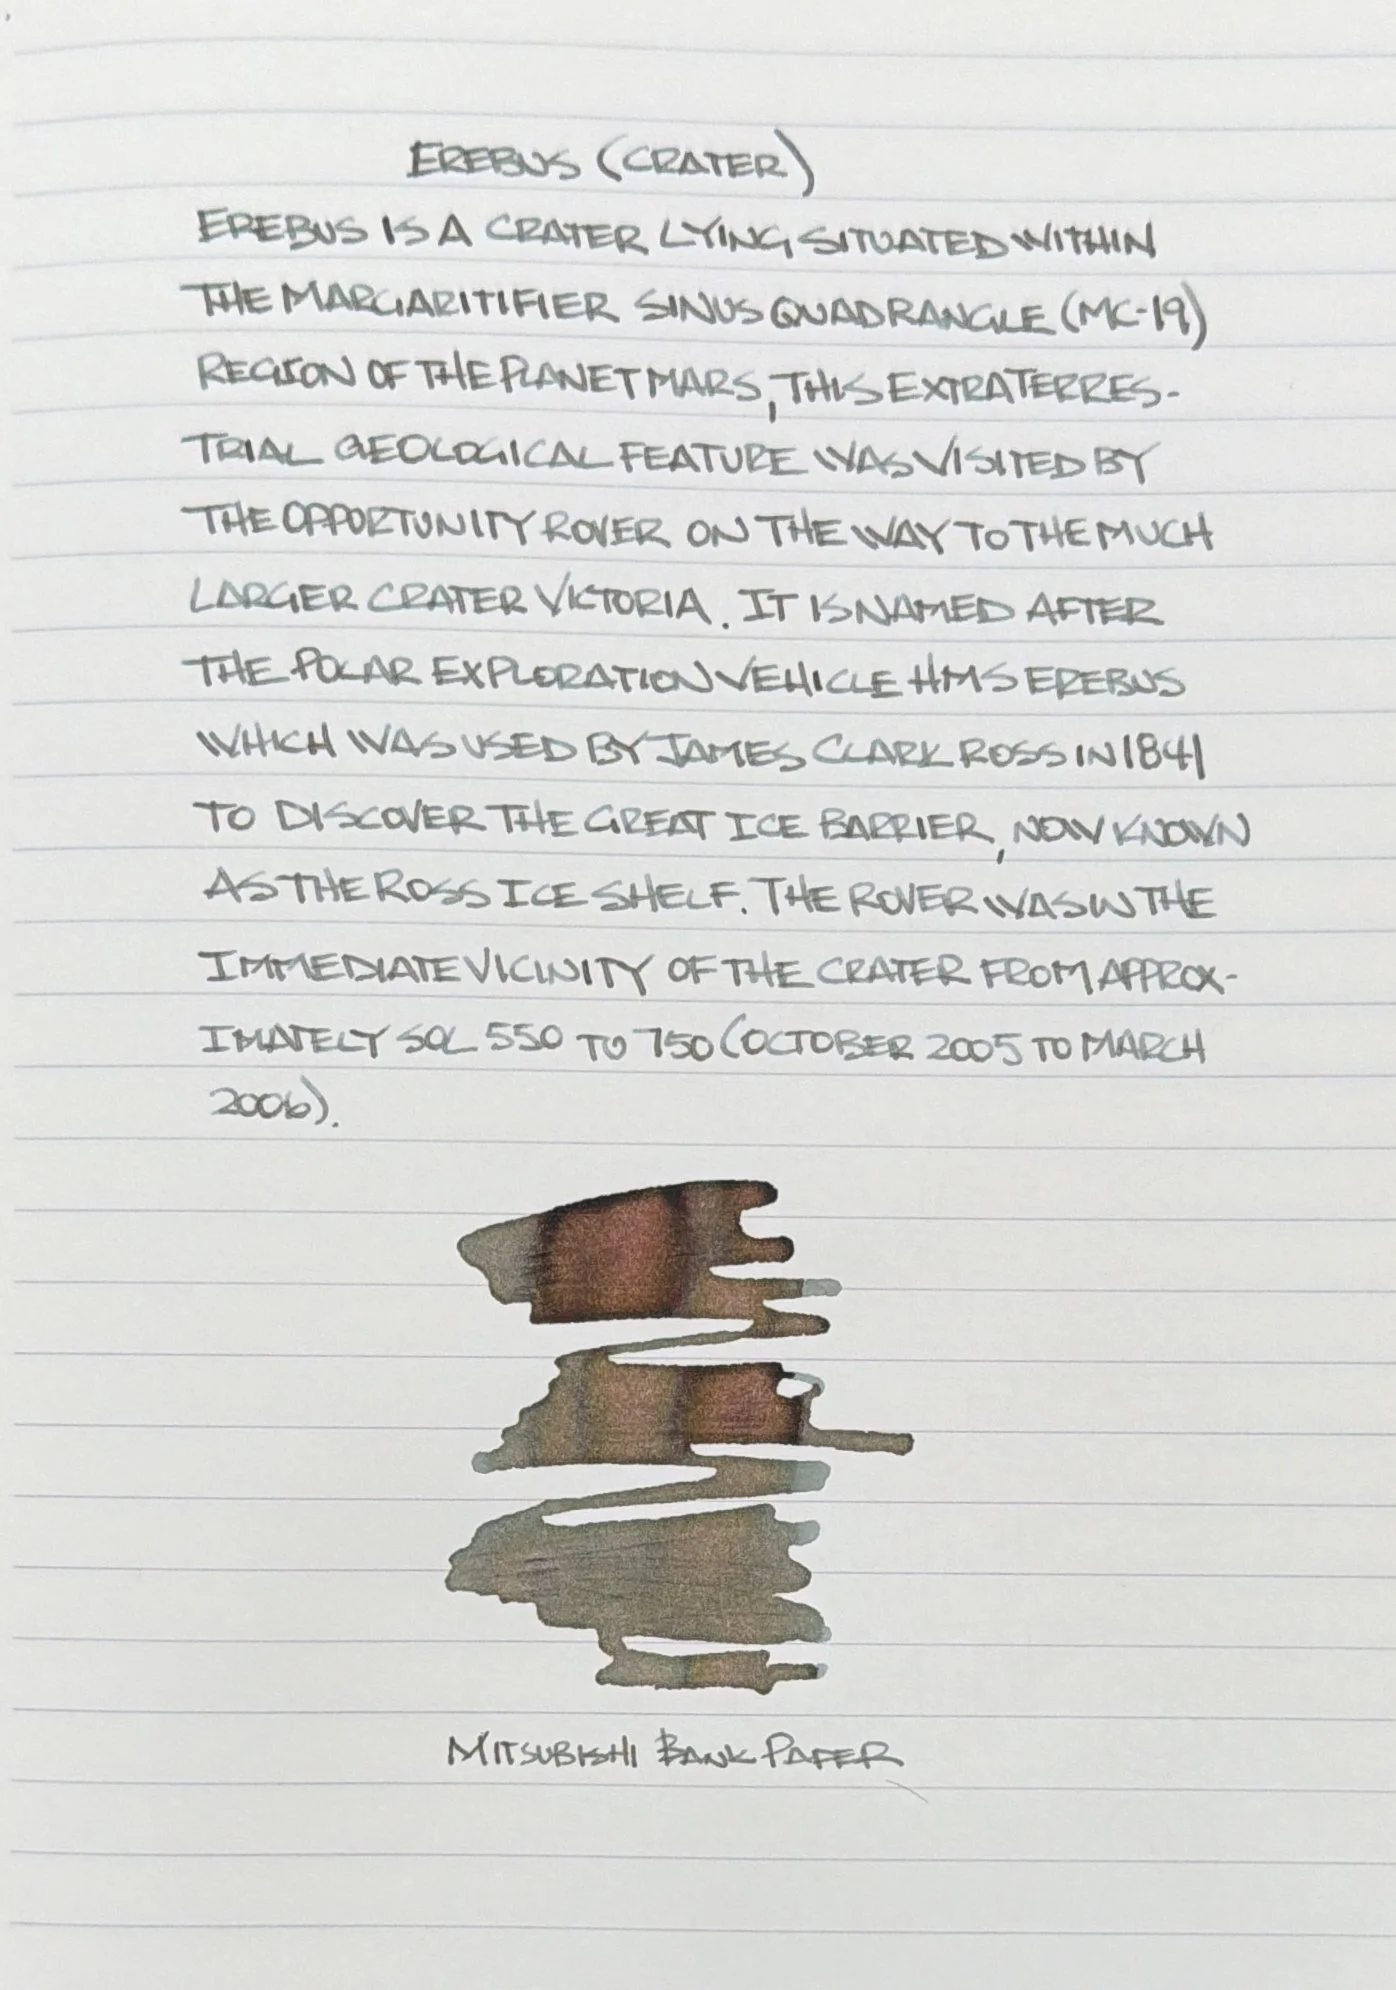 EREBUS (CRATER)
EREBUS IS A CRATER LYING SITUATED WITHIN
THE MARGARITIFIER SINUS QUADRANGLE (MC-19)
REGION OF THE PLANET MARS, THIS EXTRATERRES-
TRIAL GEOLOGICAL FEATURE WAS VISITED BY
THE OPPORTUNITY ROVER ON THE WAY TO THE MUCH
LARGER CRATER VICTORIA. IT IS NAMED AFTER
THE POLAR EXPLORATION VEHICLE HMS EREBUS
WHICH WAS USED BY JAMES CLARK ROSS IN 1841
TO DISCOVER THE GREAT ICE BARRIER, NOW KNOWN
AS THE ROSS ICE SHELF. THE ROVER WAS IN THE
IMMEDIATE VICINITY OF THE CRATER FROM APPROX-
IMATELY SOL 550 TO 750 (OCTOBER 2005 TO MARCH
2006).
MITSUBISHI BANK PAPER